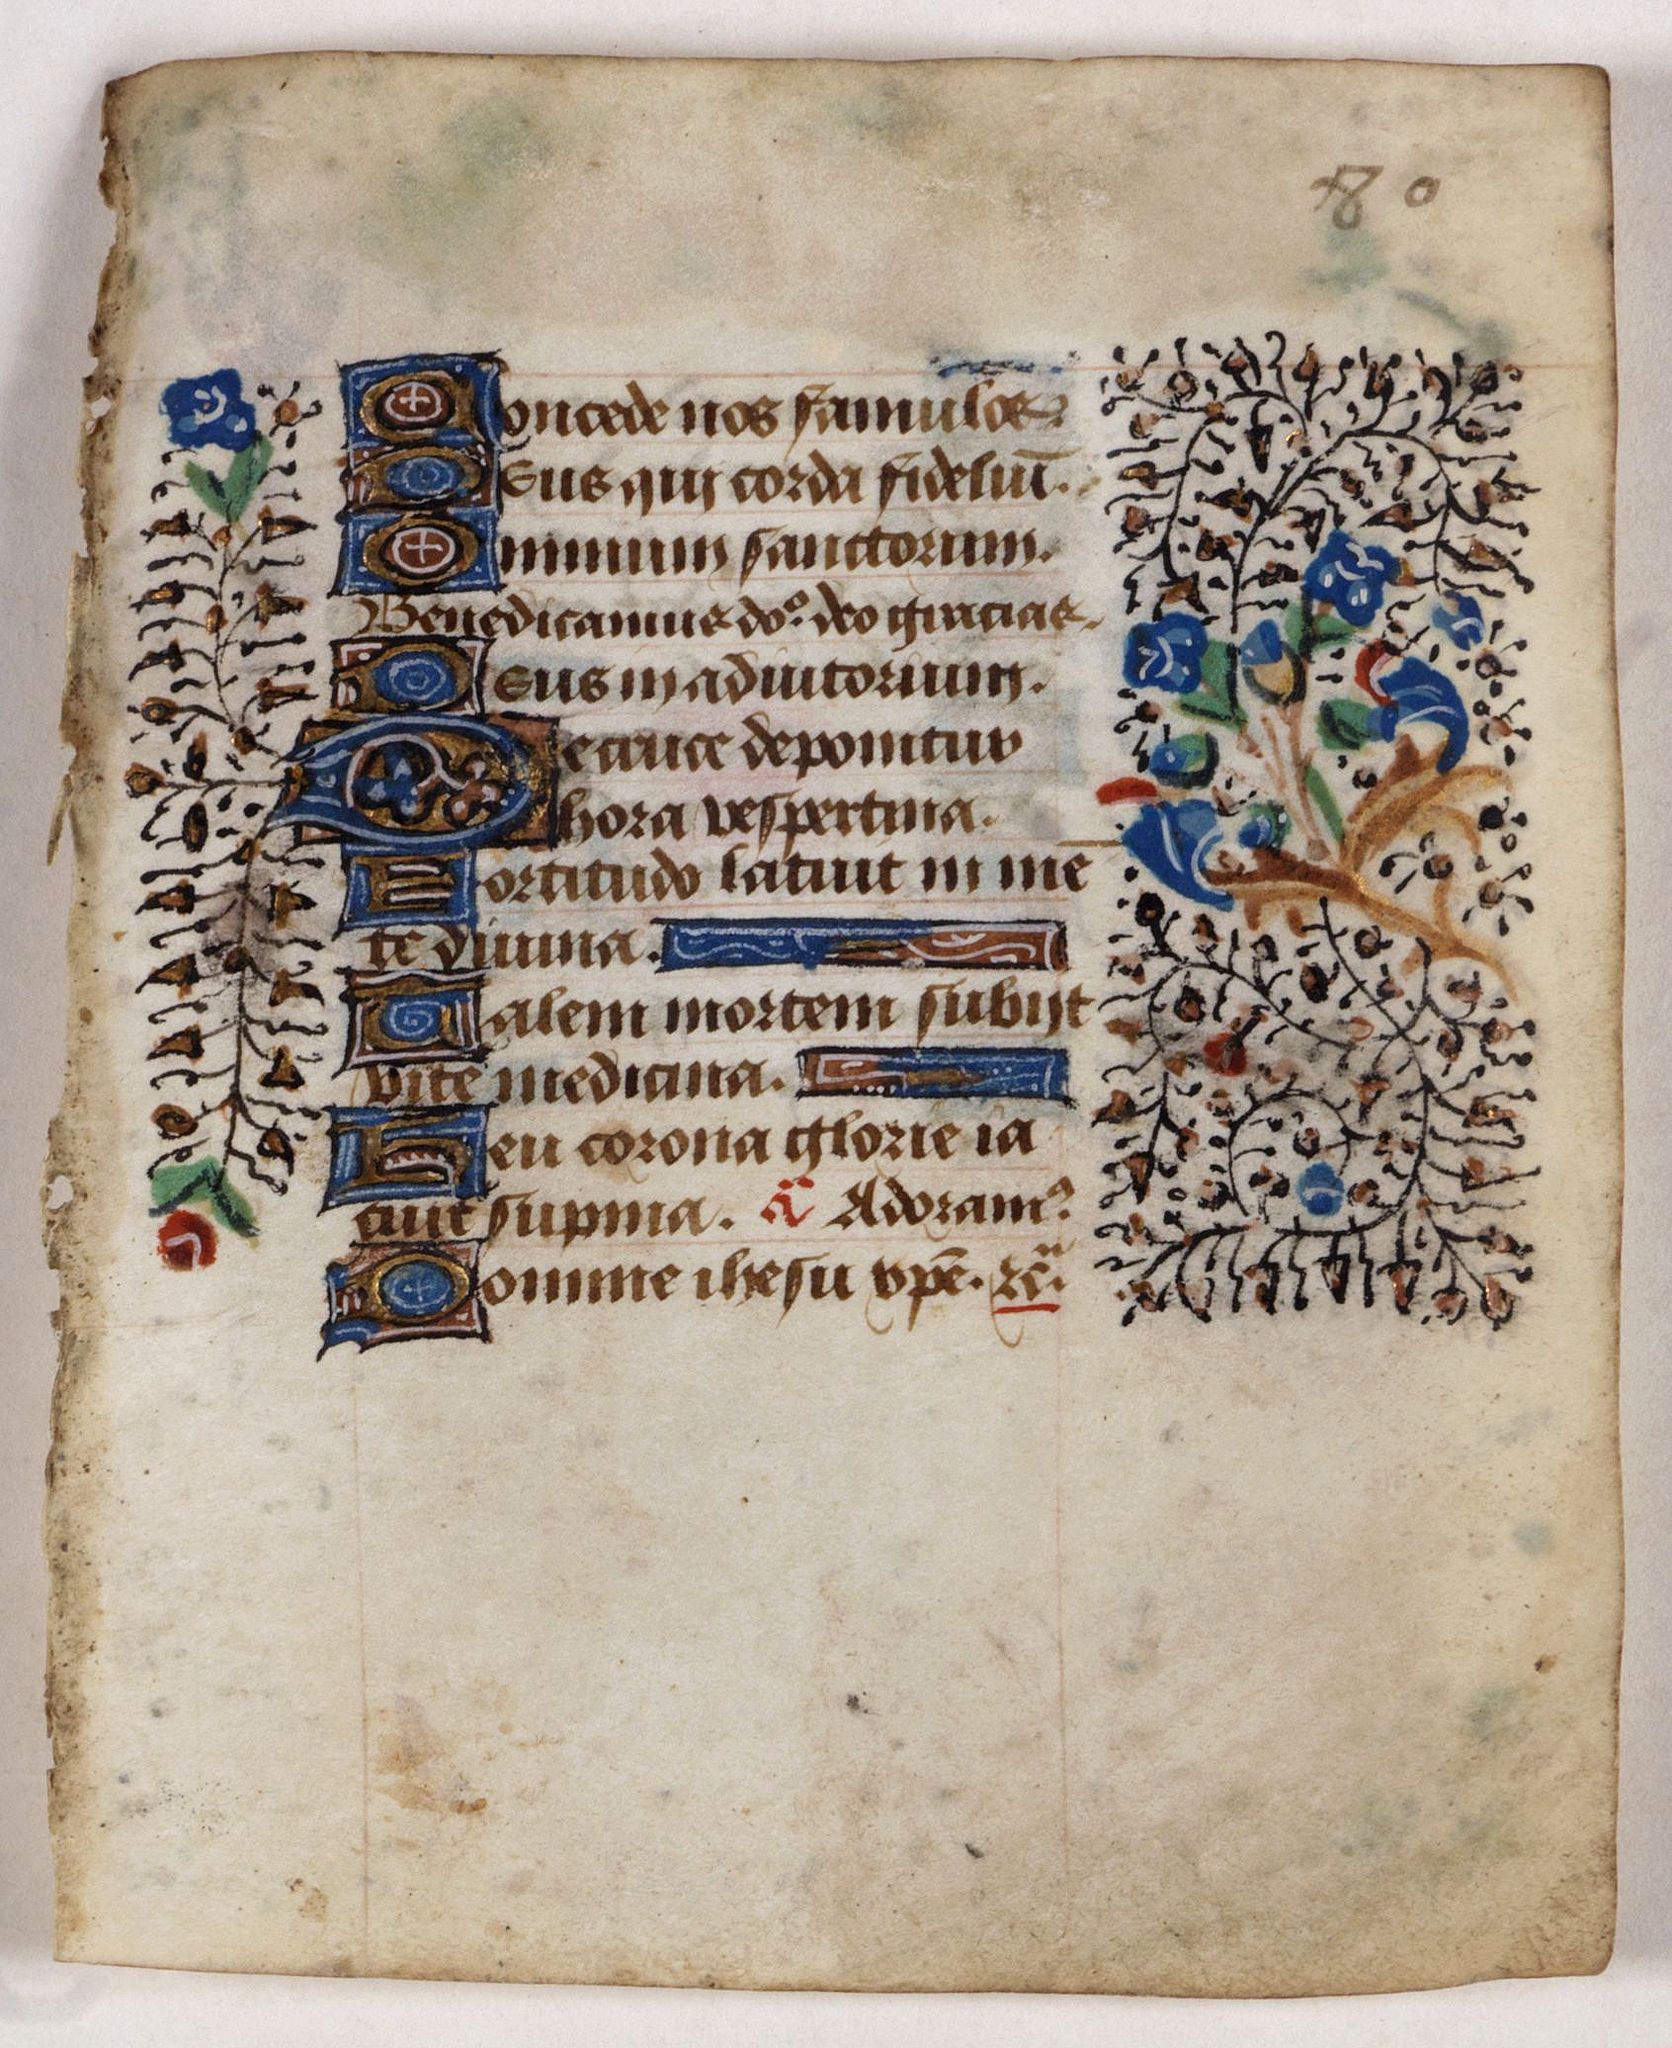 80
Concede nos famulos
Deus qui corda fideliū.
Omnium sanctorum.
Benedicamus do͛. deo gracias.
Deus in adiutorium.
De cruce deponitur
hora vespertina.
Fortitudo latuit in mē
te diuina.
Talem mortem subijt
vite medicina.
Heu corona glorie ia
cuit supina. a͞ Adoram⁹
Domine ihesu xp̄e.